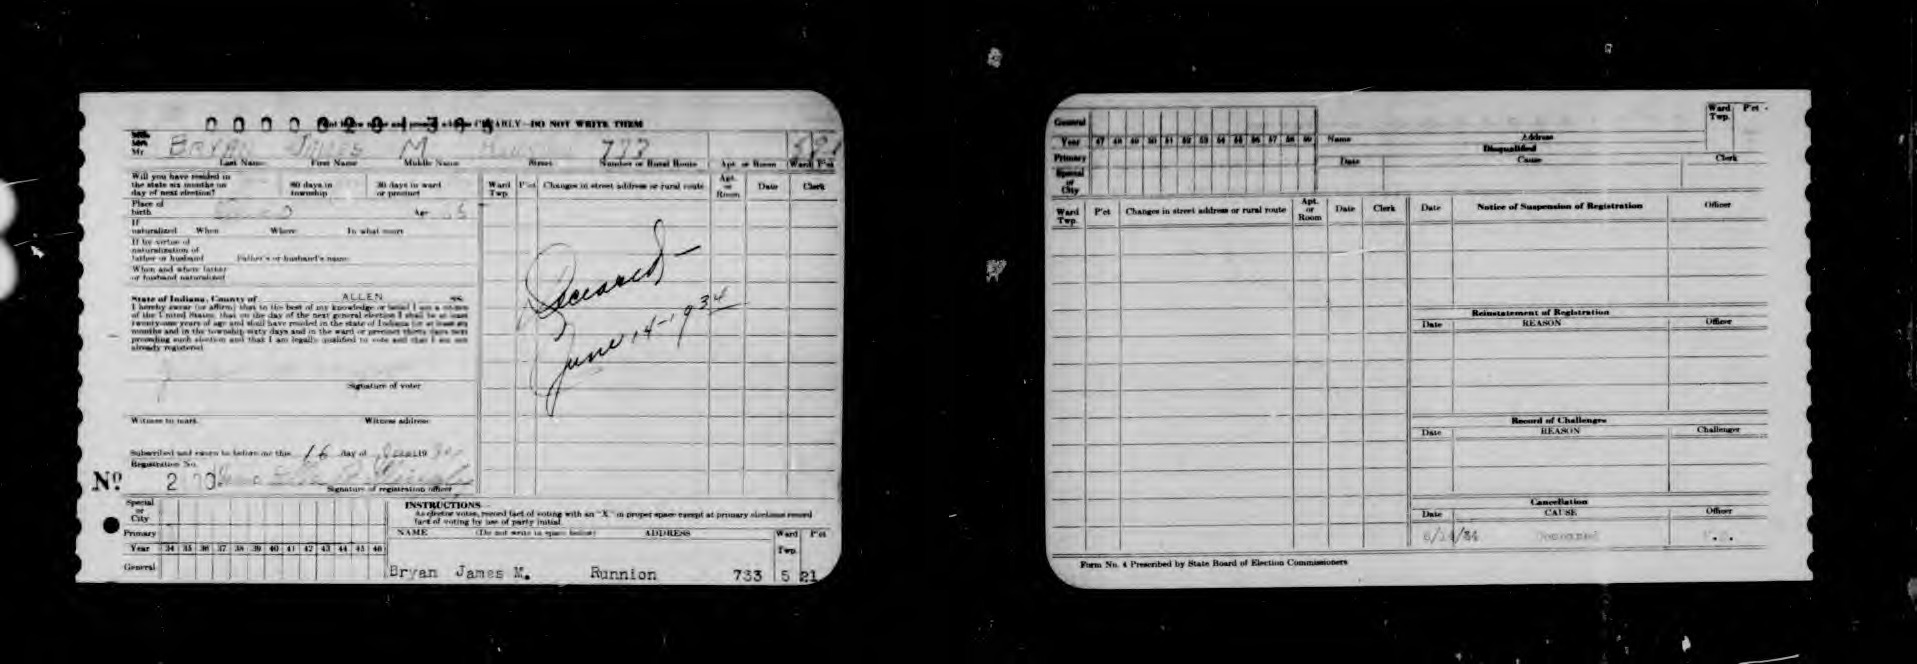 PRINT NAME AND ADDRESS CLEARLY—DO NOT WRITE THEM
Mr. BRYAN JAMES M 733 5 21
Last Name First Name Middle Name Street Number or Rural Route Apt. or Room Ward P'ct
Will you have resided in the state six months on day of next election? 60 days in township 30 days in ward or precinct
Ward Twp. P'ct Changes in street address or rural route Apt. or Room Date Clerk
Place of birth Age
If naturalized When Where In what court
If by virtue of naturalization of father or husband Father's or husband's name
When and where father or husband naturalized
State of Indiana, County of ALLEN ss.
I hereby swear (or affirm) that to the best of my knowledge or belief I am a citizen
of the United States, that on the day of the next general election I shall be at least
twenty-one years of age and shall have resided in the state of Indiana for at least six
months and in the township sixty days and in the ward or precinct thirty days next
preceding such election and that I am legally qualified to vote and that I am not
already registered.
Deceased—
June 14-1934
Signature of voter
Witness to mark Witness address
Subscribed and sworn to before me this 16 day of 19
Registration No.
No. 2 70
Signature of registration officer
Special or City
Primary
Year 34 35 36 37 38 39 40 41 42 43 44 45 46
General
INSTRUCTIONS—
As elector votes, record fact of voting with an "X" in proper space except at primary elections record
fact of voting by use of party initial.
NAME (Do not write in space below) ADDRESS Ward Twp. P'ct
Bryan James M. Runnion 733 5 21
General
Year 47 48 49 50 51 52 53 54 55 56 57 58 59
Primary
Special or City
Name Address Ward Twp. P'ct
Disqualified
Date Cause Clerk
Ward Twp. P'ct Changes in street address or rural route Apt. or Room Date Clerk
Date Notice of Suspension of Registration Officer
Reinstatement of Registration
Date REASON Officer
Record of Challenges
Date REASON Challenger
Cancellation
Date CAUSE Officer
6/14/34 Deceased
Form No. 4 Prescribed by State Board of Election Commissioners